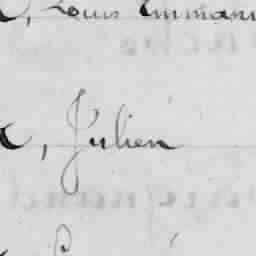 , Louis Emman
, Julien